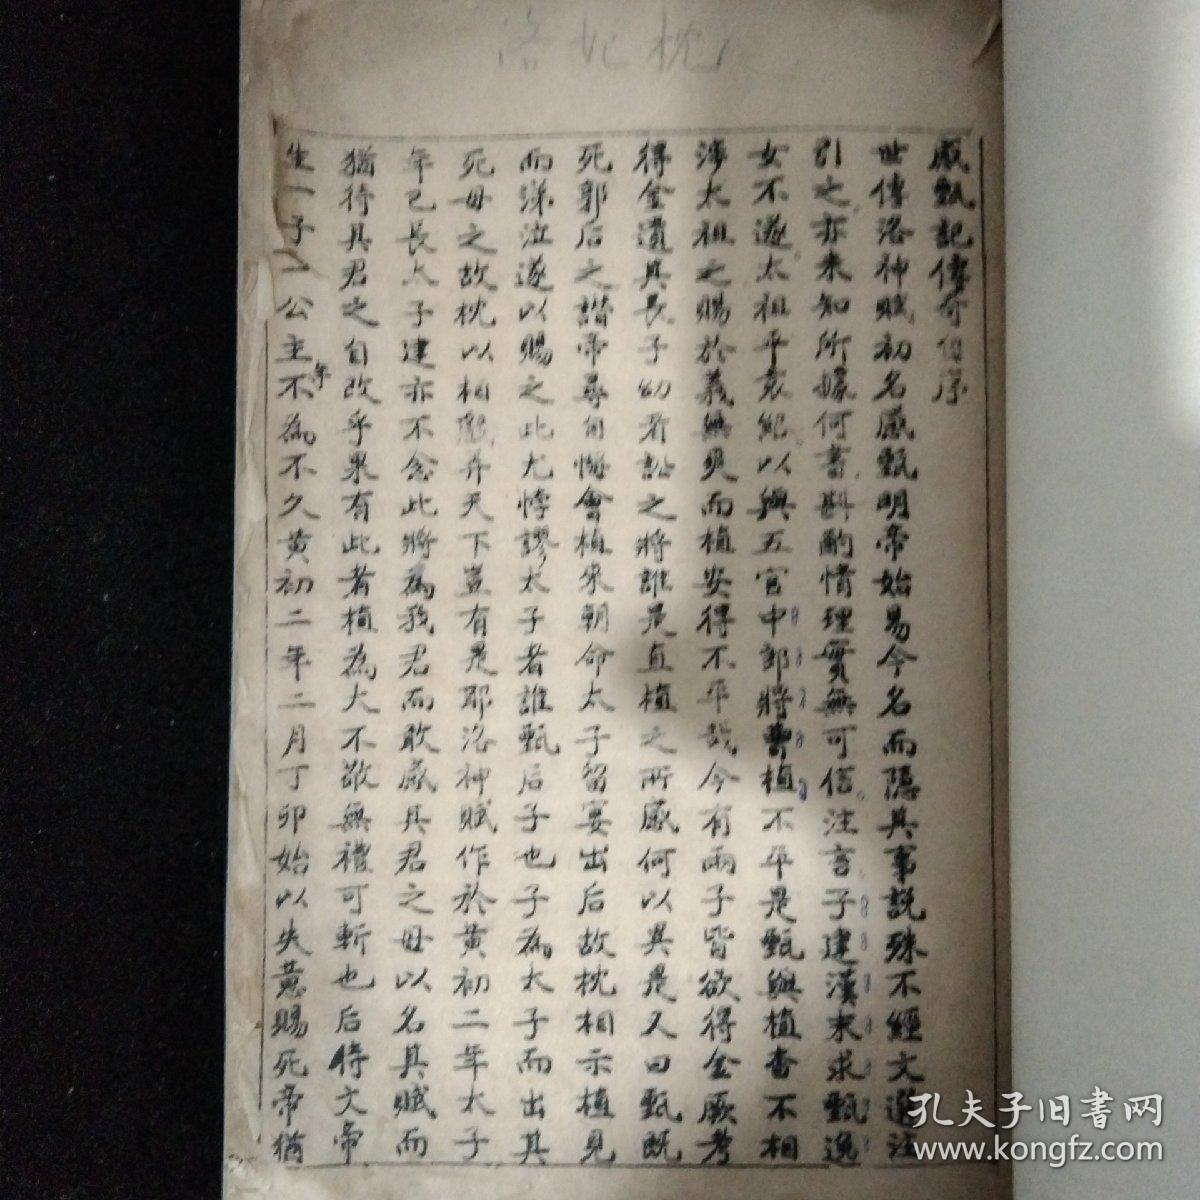 洛妃枕
感甄記傳奇自序
世傳洛神賦初名感甄明帝始易今名而隱其事説殊不經文選注
引之亦未知所據何書斟酌情理實無可信注言子建漢末求甄逸
女不遂太祖平袁紹以與五官中郎將曹植不平是甄與植杳不相
涉太祖之賜於義無爽而植安得不平哉今有兩子皆欲得金厥考
得金遺其長子幼者訟之將誰是直植之所感何以異是又曰甄既
死郭后之譖帝尋自悔會植來朝命太子留宴出后故枕相示植見
而涕泣遂以賜之此尤悖謬太子者誰甄后子也子為太子而出其
死母之故枕以相戲弄天下豈有是耶洛神賦作於黃初二年太子
年已長太子建亦不念此將為我君而敢感其君之母以名其賦而
猶待其君之自改乎果有此者植為大不敬無禮可斬也后侍文帝
生一子一公主年不為不久黃初二年二月丁卯始以失意賜死帝猶
孔夫子旧書网
www.kongfz.com